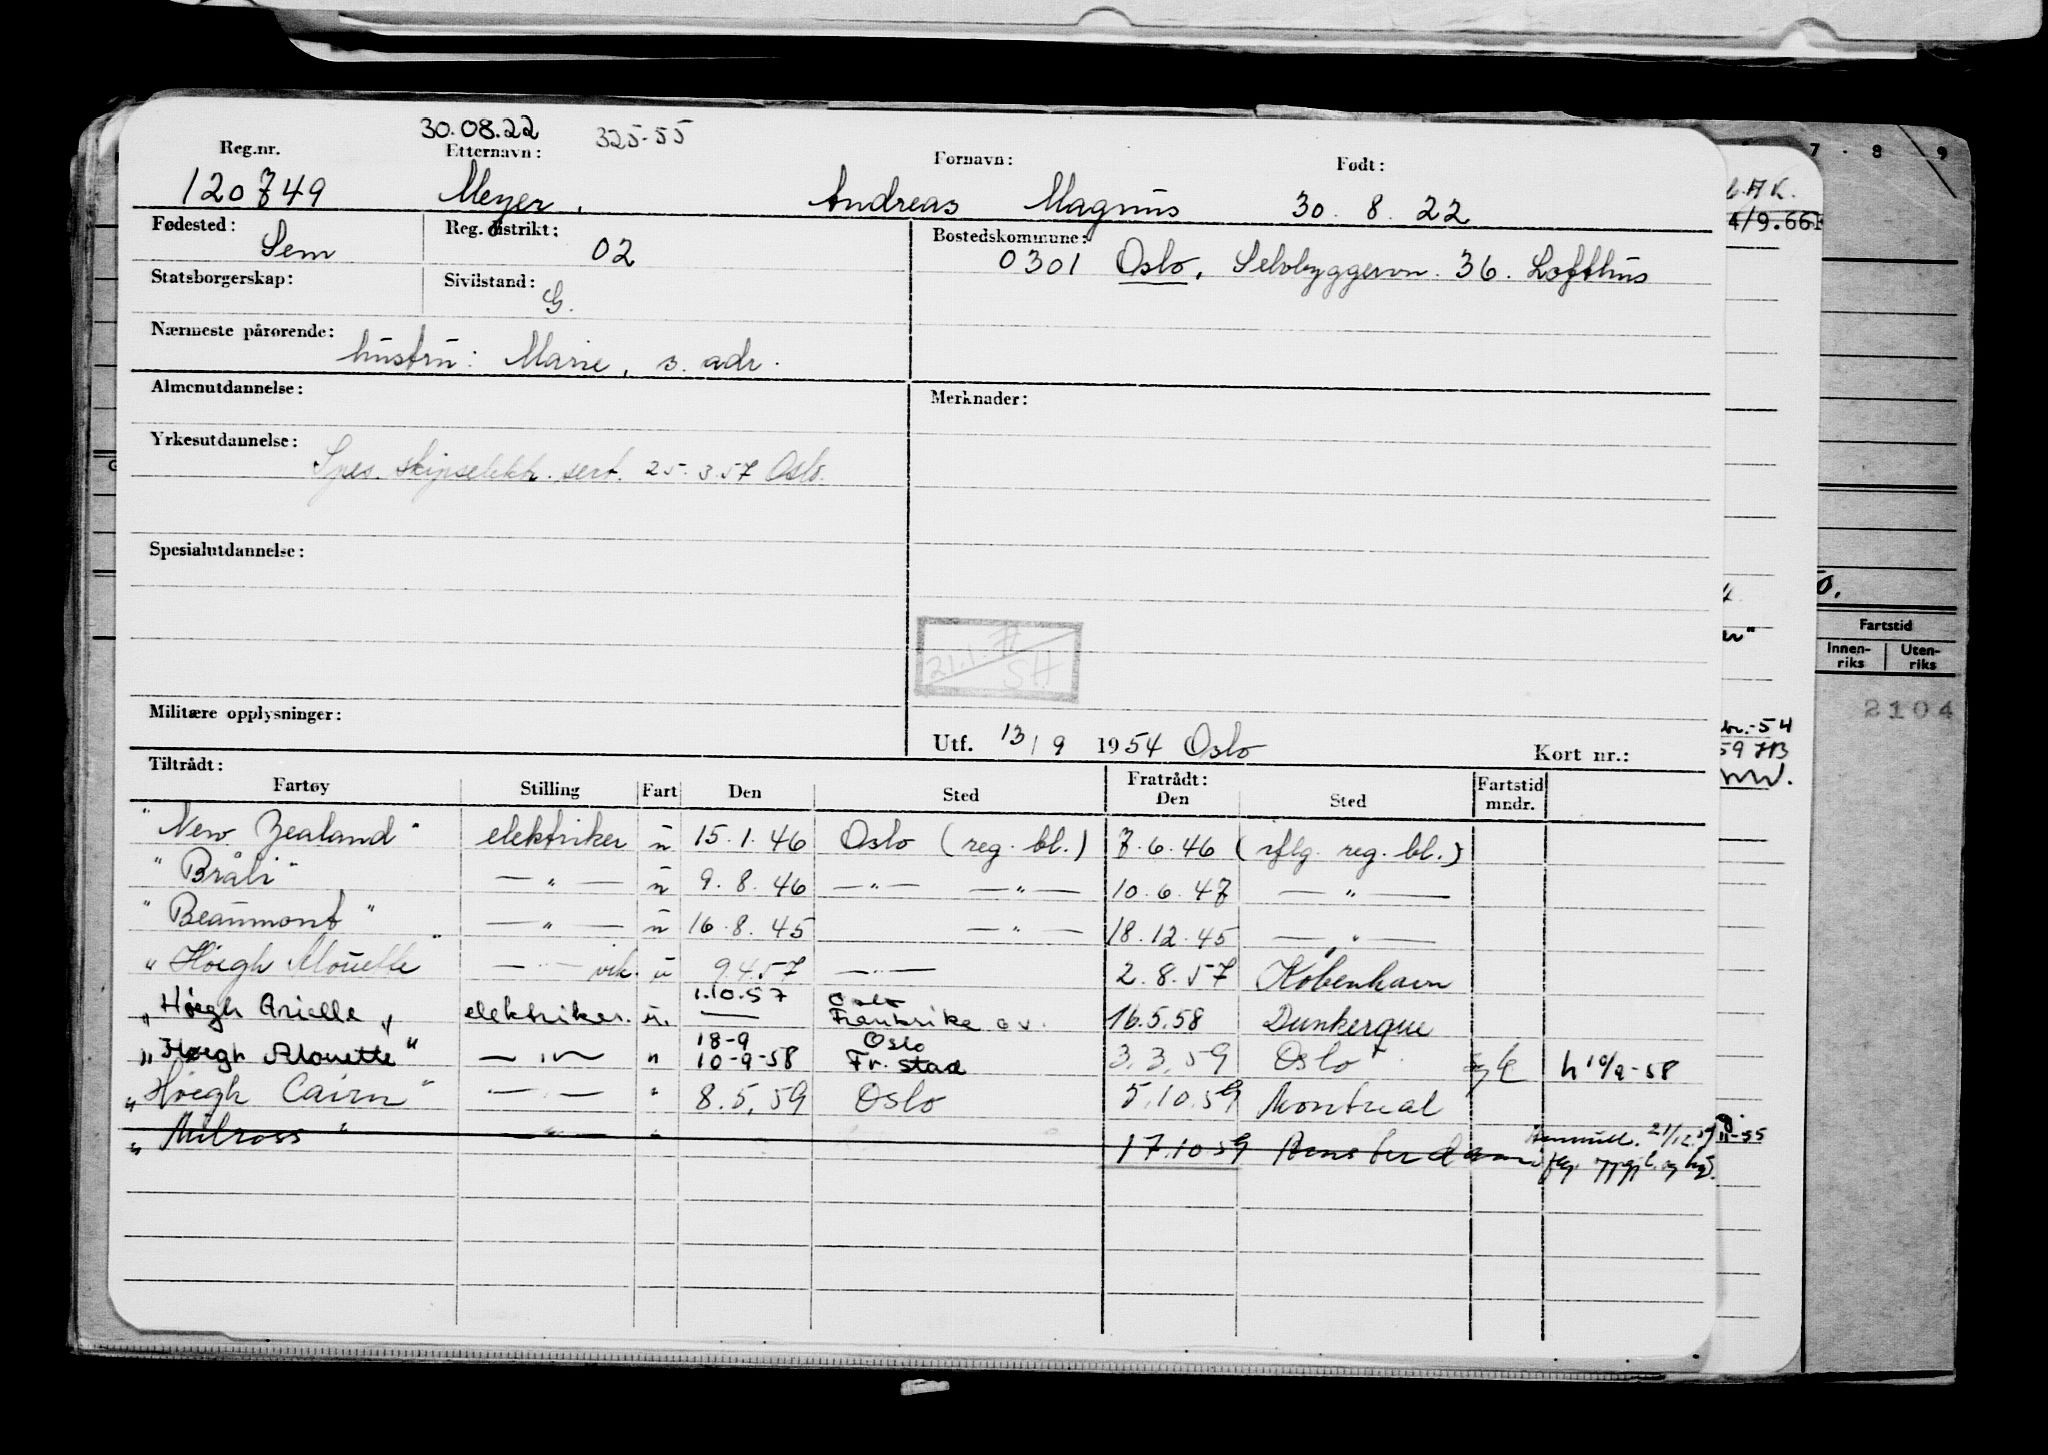 30.08.22 325-55
Reg.nr. Etternavn: Fornavn: Født:
120749 Meyer, Andreas Magnus 30. 8. 22
Fødested: Sem Reg. distrikt: 02 Bostedskommune: 0301 Oslo, Selvbyggervn. 36. Lofthus
Statsborgerskap: Sivilstand: G.
Nærmeste pårørende: hustru: Marie, s. adr.
Almenutdannelse: Merknader:
Yrkesutdannelse: Spes. skipselektr. sert. 25.3.57 Oslo.
Spesialutdannelse:
SH
Militære opplysninger:
Utf. 13/9 1954 Oslo Kort nr.:
Tiltrådt: Fratrådt:
Fartøy Stilling Fart Den Sted Den Sted Fartstid mndr.
"New Zealand" elektriker u 15.1.46 Oslo (reg. bl.) 7.6.46 (iflg. reg. bl.)
"Bråli" — " — u 9.8.46 — " — — " — 10.6.47 — " —
"Beaumont" — " — u 16.8.45 — " — 18.12.45 — " —
"Höegh Alouette" — " — vik. u 9.4.57 — " — 2.8.57 København
1.10.57 Oslo
"Höegh Arielle" elektriker. u. — Frankrike 16.5.58 Dunkerque
18-9 Oslo
"Høegh Alouette" — " — " 10-9-58 Fr. stad 3.3.59 Oslo h 10/9-58
"Höegh Cairn" — " — " 8.5.59 Oslo 5.10.59 Montreal
"Milross" — " — " 17.10.59 Amsterdam Annull. 21/12.59
iflg.
7 8 9
4/9.66
Fartstid
Innen-riks Uten-riks
2104
-54
11-55